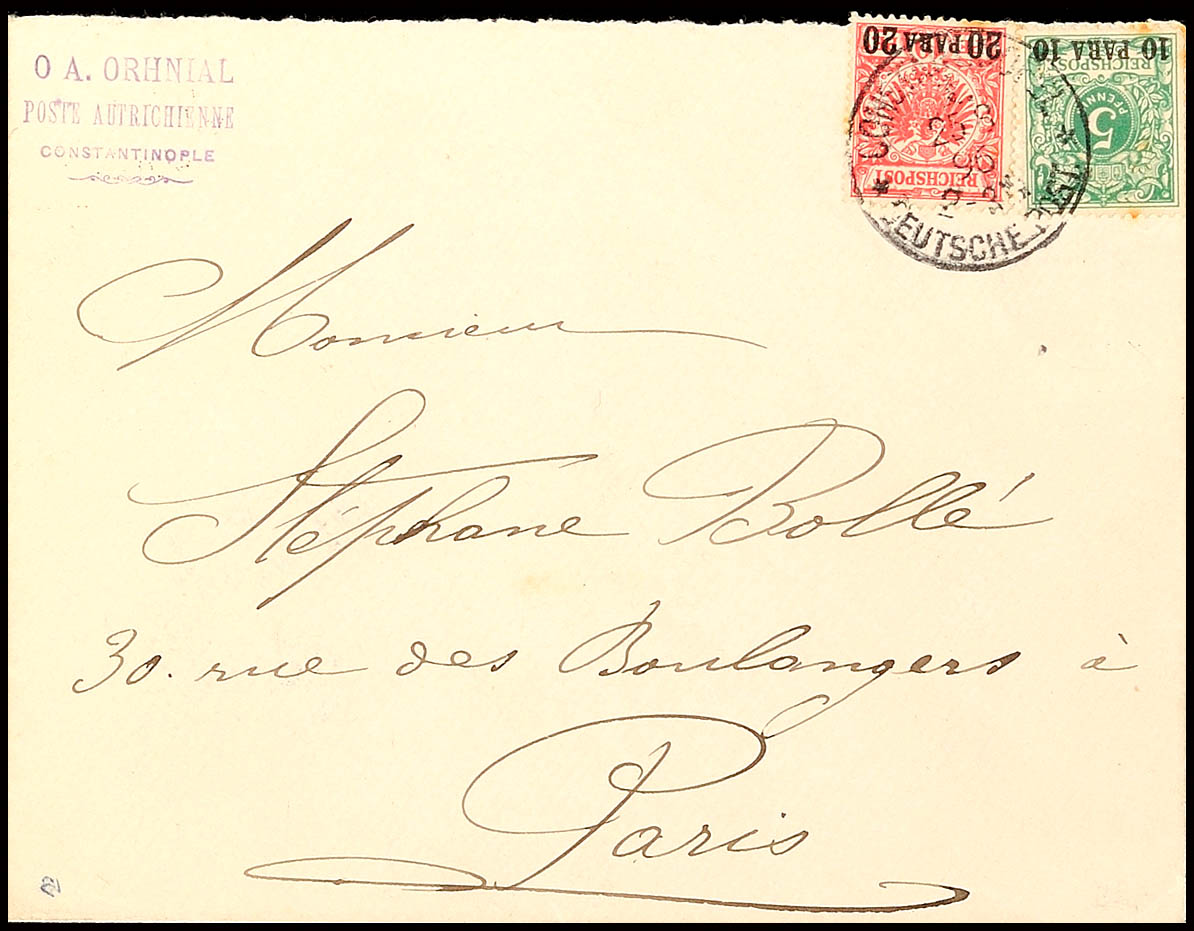 O A. ORHNIAL
POSTE AUTRICHIENNE
CONSTANTINOPLE
20 PARA 20
REICHSPOST
10 PARA 10
REICHSPOST
5
PFENNIG
DEUTSCHE POST.
Monsieur
Stéphane Bollé
30. rue des Boulangers à
Paris